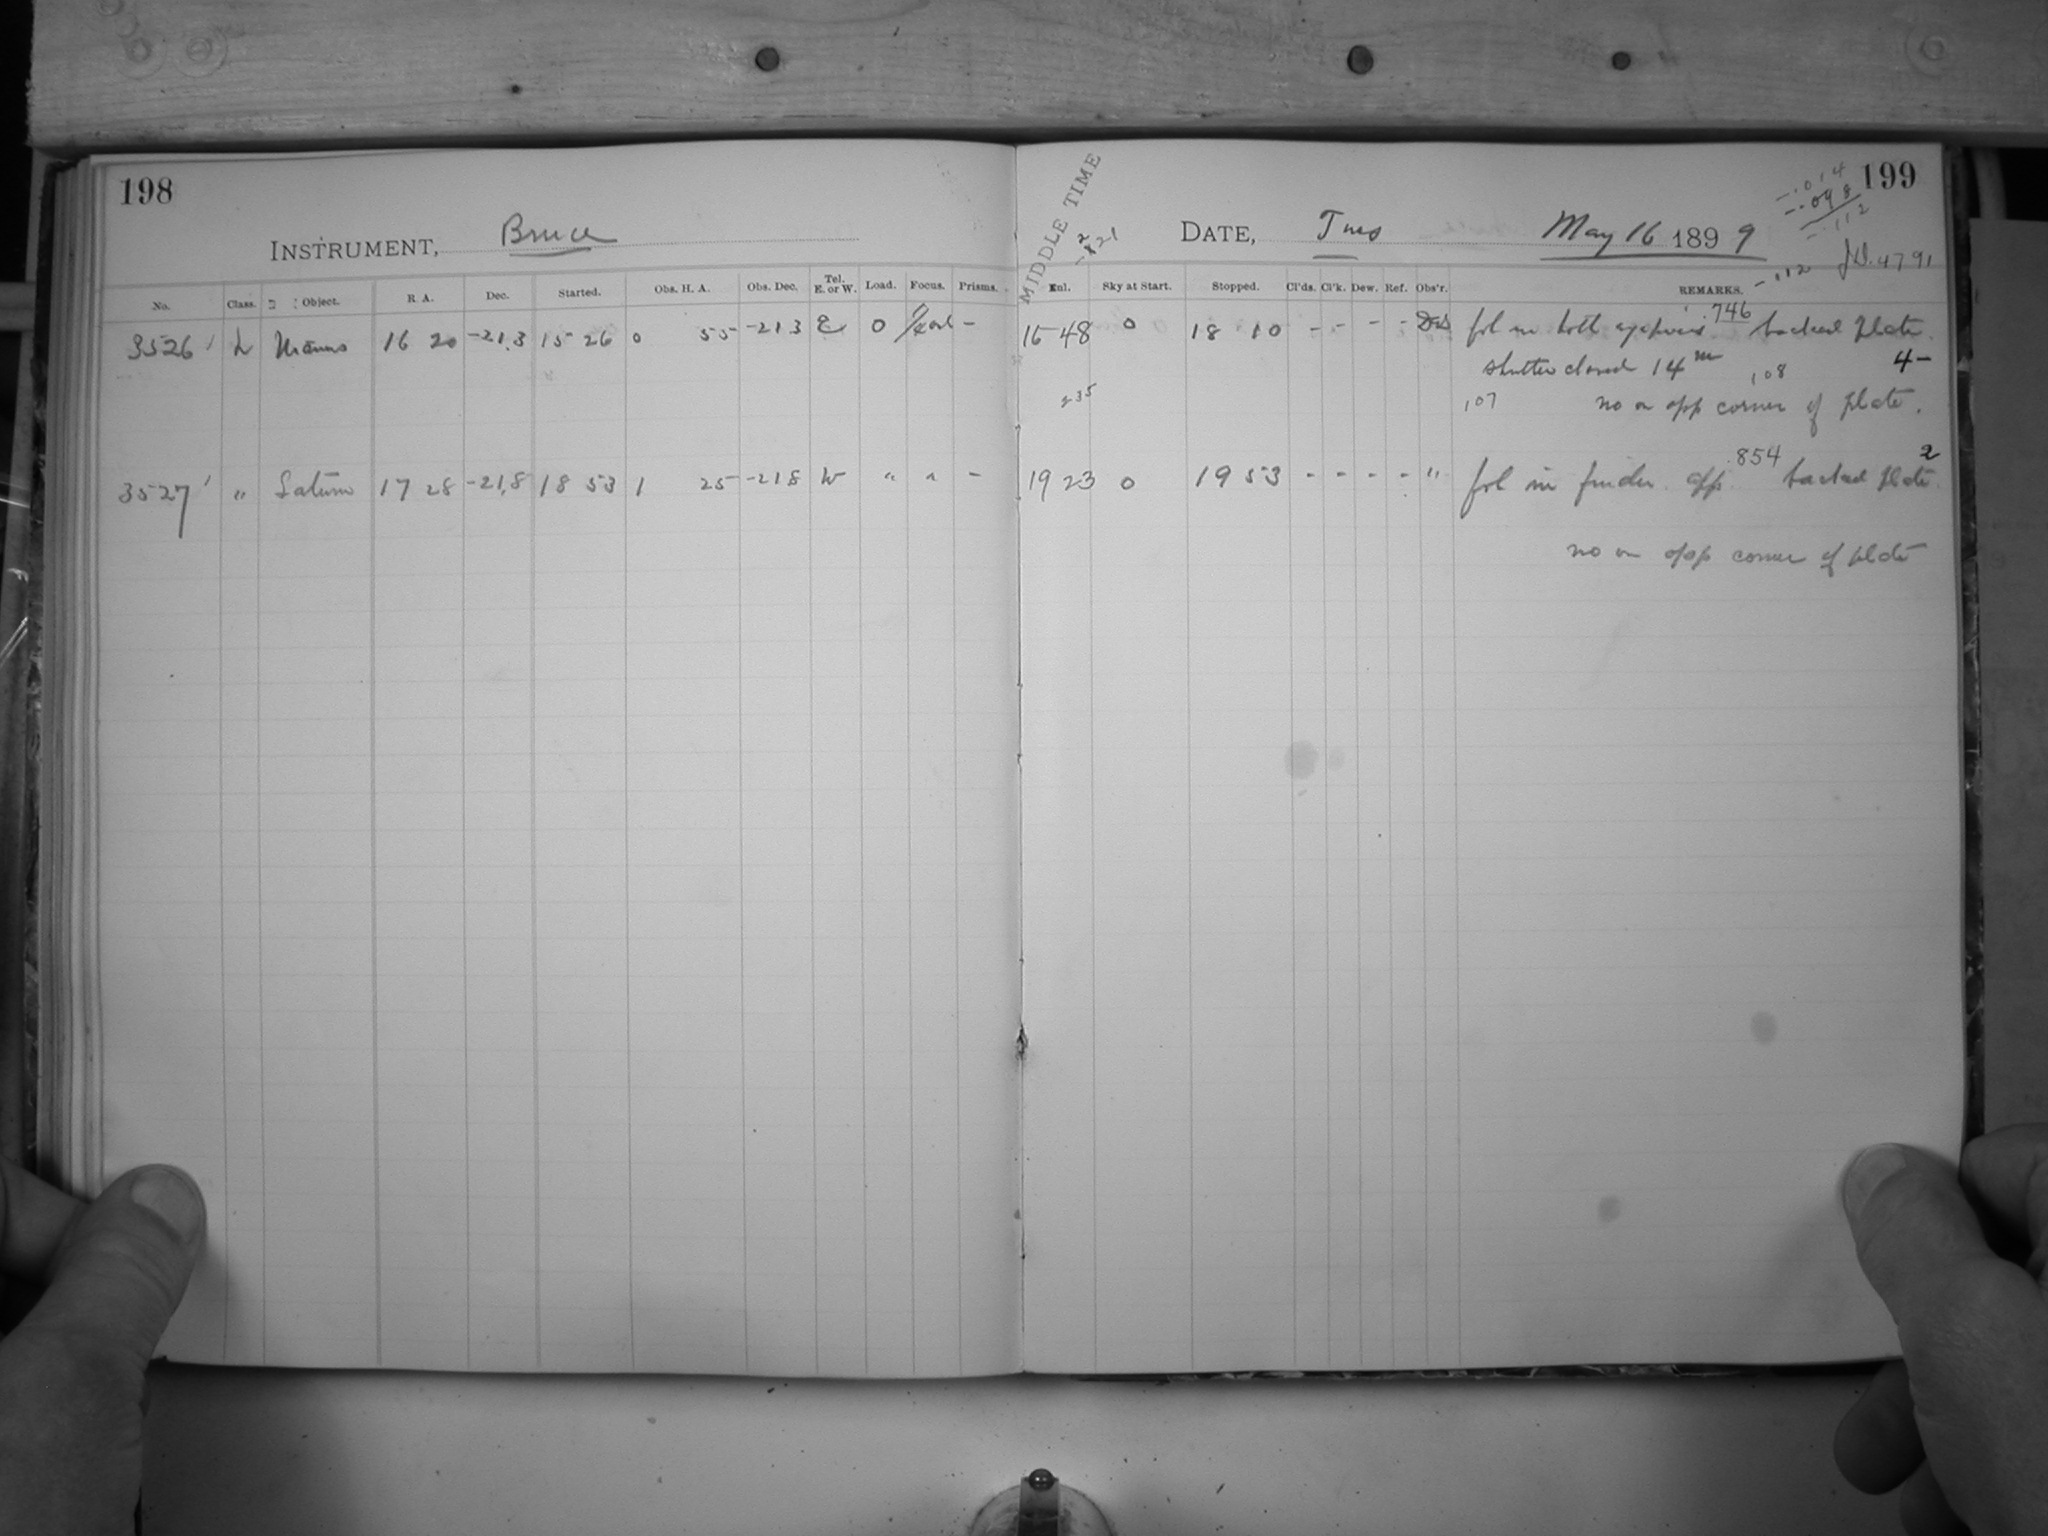 198
INSTRUMENT, Bruce
No. Class. Object. R. A. Dec. Started. Obs. H. A. Obs. Dec. Tel. E. or W. Load. Focus. Prisms.
3526 L Uranus 16 20 -21.3 15 26 0 55 -21 3 E 0 -
3527 " Saturn 17 28 -21.8 18 53 1 25 -21 8 W " " -
199
-.014
-.098
-.112
MIDDLE TIME
DATE, Tues May 16 1899
-.112 J.D. 4791
Eul. Sky at Start. Stopped. Cl'ds. Cl'k. Dew. Ref. Obs'r. REMARKS.
16 48 0 18 10 - - - - fol in both .746 backed plate.
shutter closed 14 m 4-
235 .107 .108 no on opp corner of plate.
19 23 0 19 53 - - - - " fol in finder opp .854 backed plate. 2
no on opp corner of plate